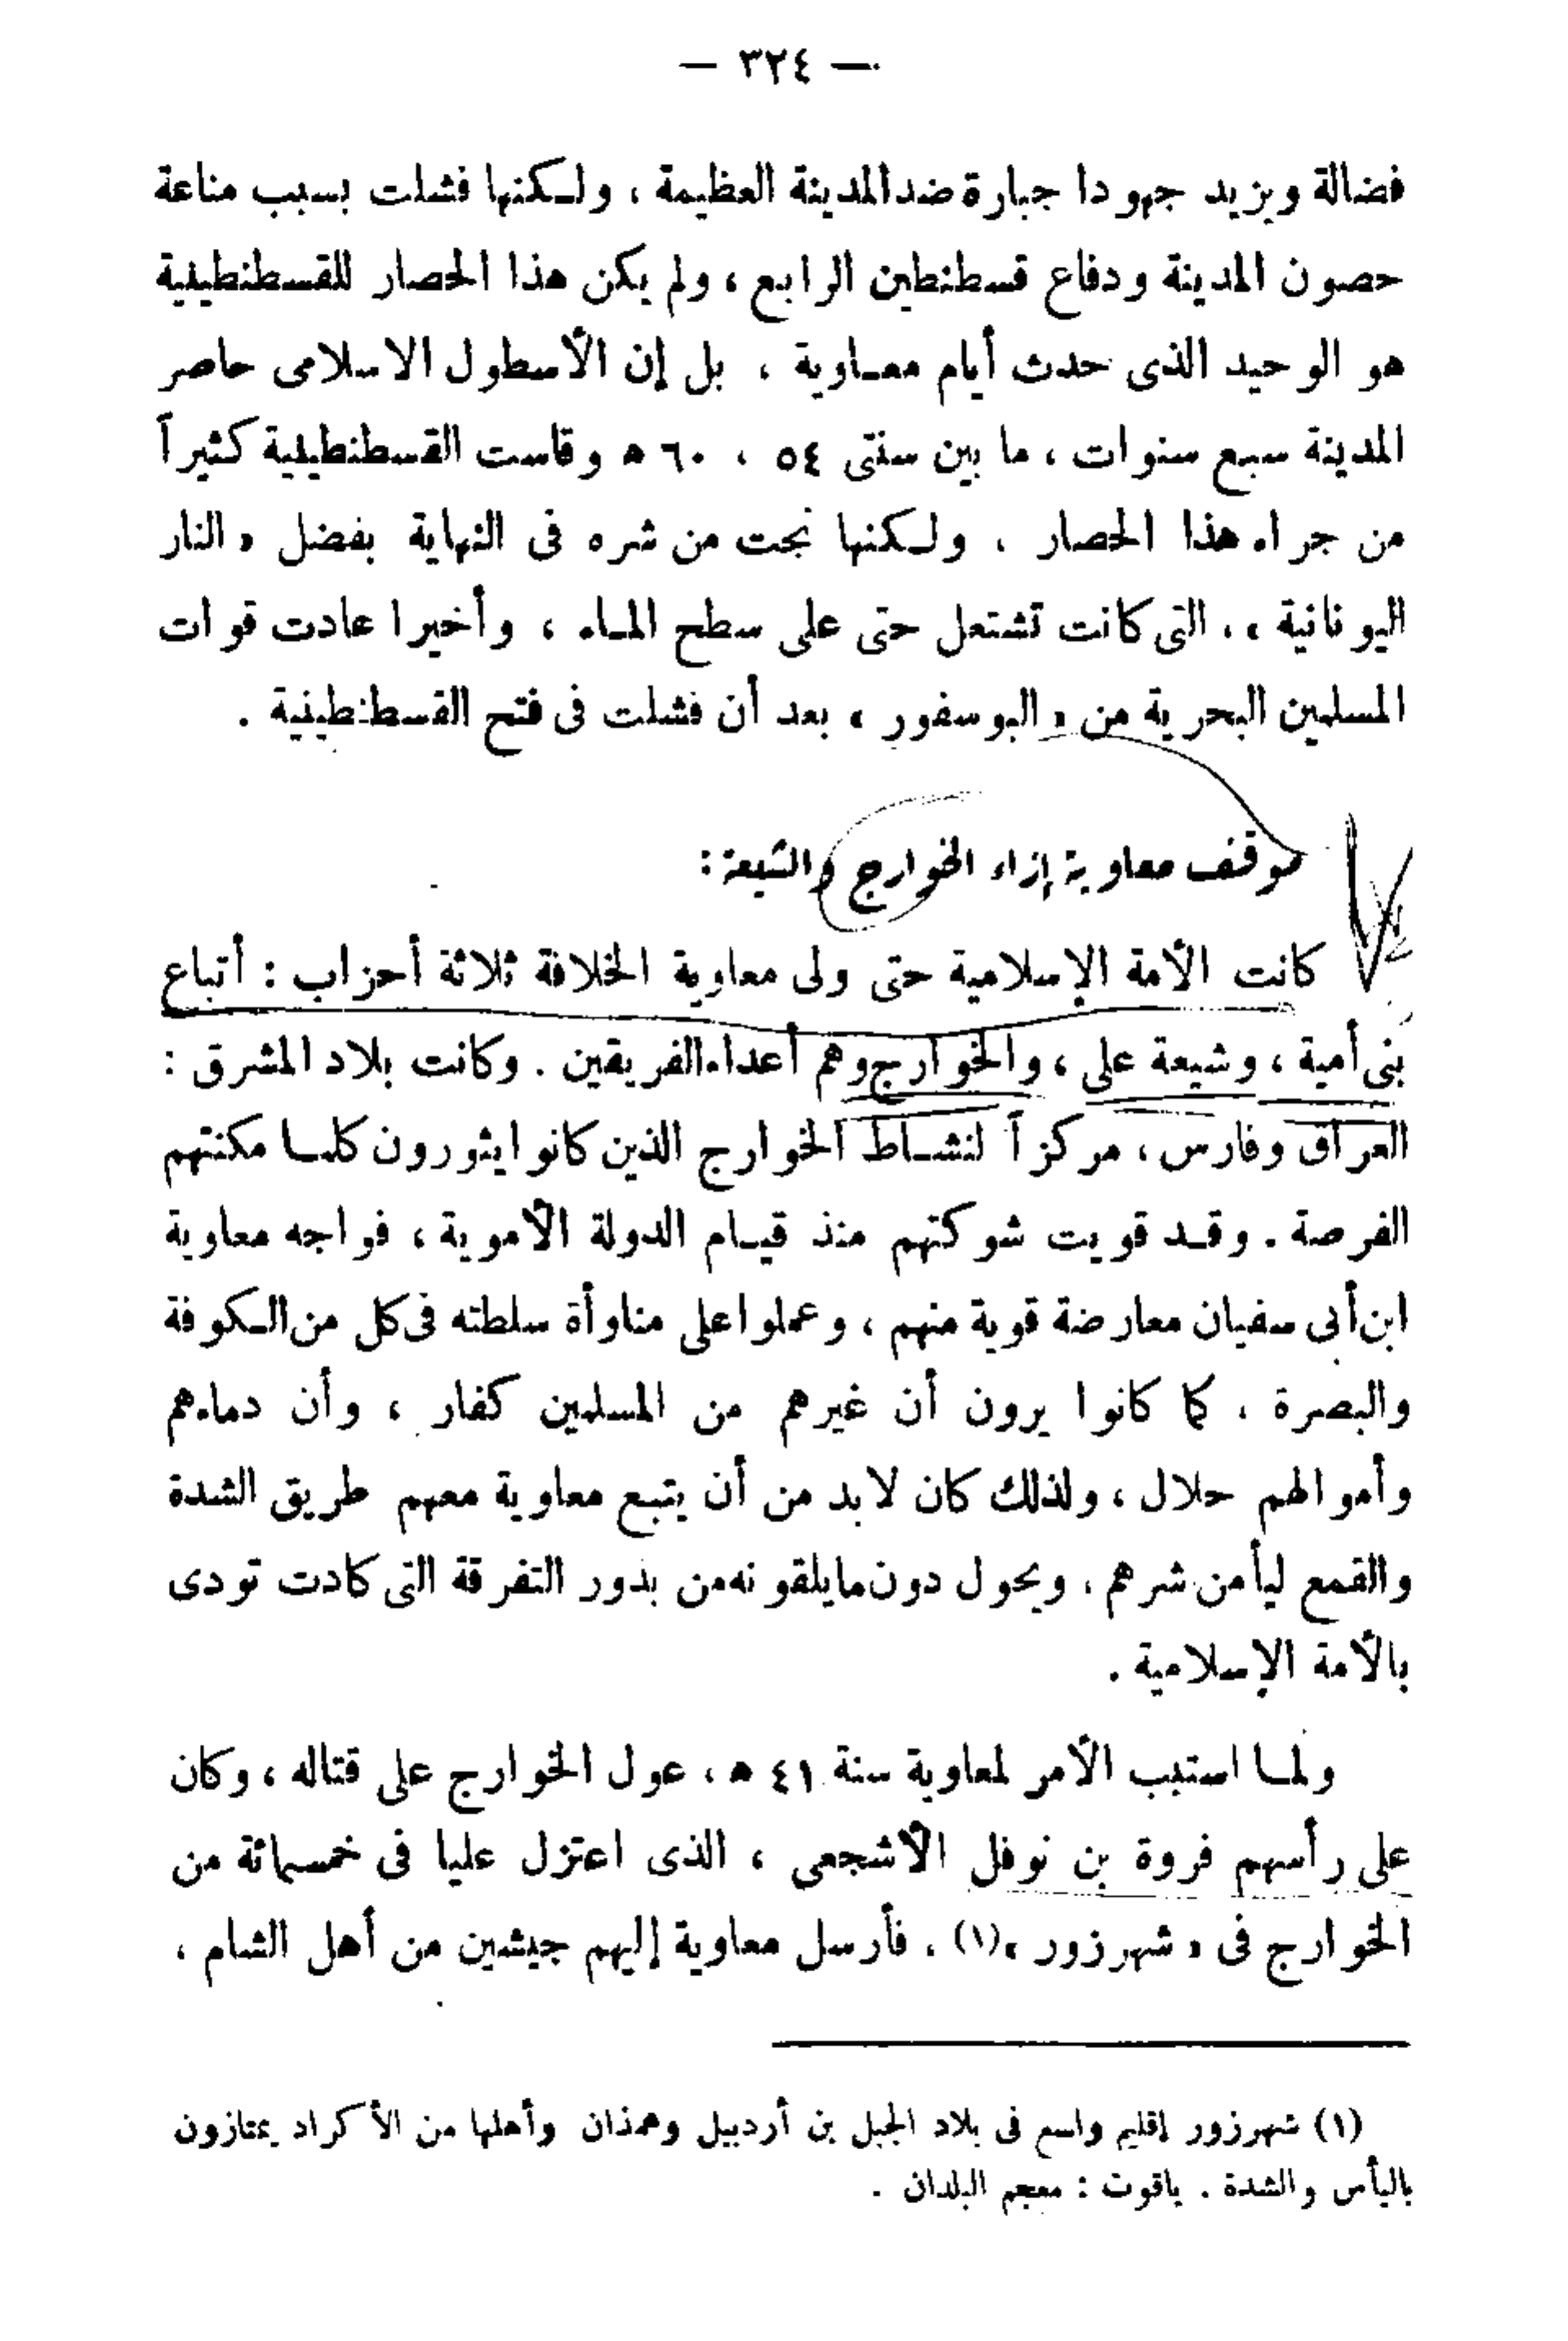 — ٣٢٤ —
فضالة ويزيد جهودا جبارة ضد المدينة العظيمة ، ولكنها فشلت بسبب مناعة
حصون المدينة ودفاع قسطنطين الرابع ، ولم يكن هذا الحصار للقسطنطينية
هو الوحيد الذى حدث أيام معاوية ، بل إن الأسطول الاسلامى حاصر
المدينة سبع سنوات ، ما بين سنتى ٥٤ ، ٦٠ ه وقاست القسطنطينية كثيراً
من جراء هذا الحصار ، ولكنها نجت من شره فى النهاية بفضل « النار
اليونانية » ، التى كانت تشتعل حتى على سطح الماء ، وأخيرا عادت قوات
المسلمين البحرية من « البوسفور » بعد أن فشلت فى فتح القسطنطينية .
موقف معاوية إزاء الخوارج والشيعة :
كانت الأمة الإسلامية حتى ولى معاوية الخلافة ثلاثة أحزاب : أتباع
بنى أمية ، وشيعة على ، والخوارج وهم أعداء الفريقين . وكانت بلاد المشرق :
العراق وفارس ، مركزاً لنشاط الخوارج الذين كانوا يثورون كلما مكنتهم
الفرصة . وقد قويت شوكتهم منذ قيام الدولة الأموية ، فواجه معاوية
ابن أبى سفيان معارضة قوية منهم ، وعملوا على مناوأة سلطته فى كل من الكوفة
والبصرة ، كما كانوا يرون أن غيرهم من المسلمين كفار ، وأن دماءهم
وأموالهم حلال ، ولذلك كان لابد من أن يتبع معاوية معهم طريق الشدة
والقمع ليأمن شرهم ، ويحول دون ما يلقونه من بذور التفرقة التى كادت تودى
بالأمة الإسلامية .
ولما استتب الأمر لمعاوية سنة ٤١ ه ، عول الخوارج على قتاله ، وكان
على رأسهم فروة بن نوفل الأشجعى ، الذى اعتزل عليا فى خمسمائة من
الخوارج فى « شهرزور »(١) ، فأرسل معاوية إليهم جيشين من أهل الشام ،
(١) شهرزور إقليم واسع فى بلاد الجبل بن أردبيل وهمذان وأهلها من الأكراد يمتازون
بالبأس والشدة . ياقوت : معجم البلدان .